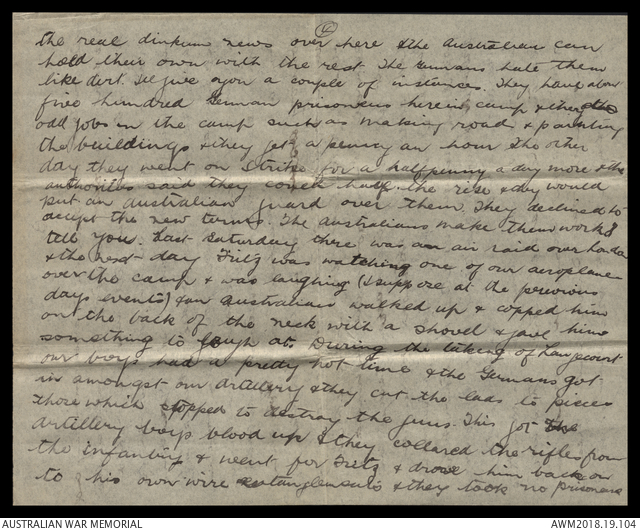 4
the real dinkum news over here & the Australian can
hold their own with the rest. The Germans hate them
like dirt. I'll give you a couple of instances. They have about
five hundred German prisoners here in camp & they do
odd jobs in the camp such as making roads & painting
the buildings & they get a penny an hour. The other
day they went on strike for a halfpenny a day more & the
authorities said they could have the rise & they would
put an Australian guard over them. They declined to
accept the new terms. The Australians make them work I
tell you. Last Saturday there was an air raid over London
& the next day Fritz was watching one of our aeroplanes
over the camp & was laughing (I suppose at the previous
days events) & an Australian walked up & copped him
on the back of the neck with a shovel & gave him
something to laugh at. During the taking of
our boys had a pretty hot time & the Germans got
in amongst our artillery & they cut the lads to pieces
those which stopped to destroy the guns. This got the
artillery boys blood up & they collared the rifles from
the infantry & went for Fritz & drove him back on
to his own wire entanglements & they took no prisoners
AUSTRALIAN WAR MEMORIAL
AWM2018.19.104